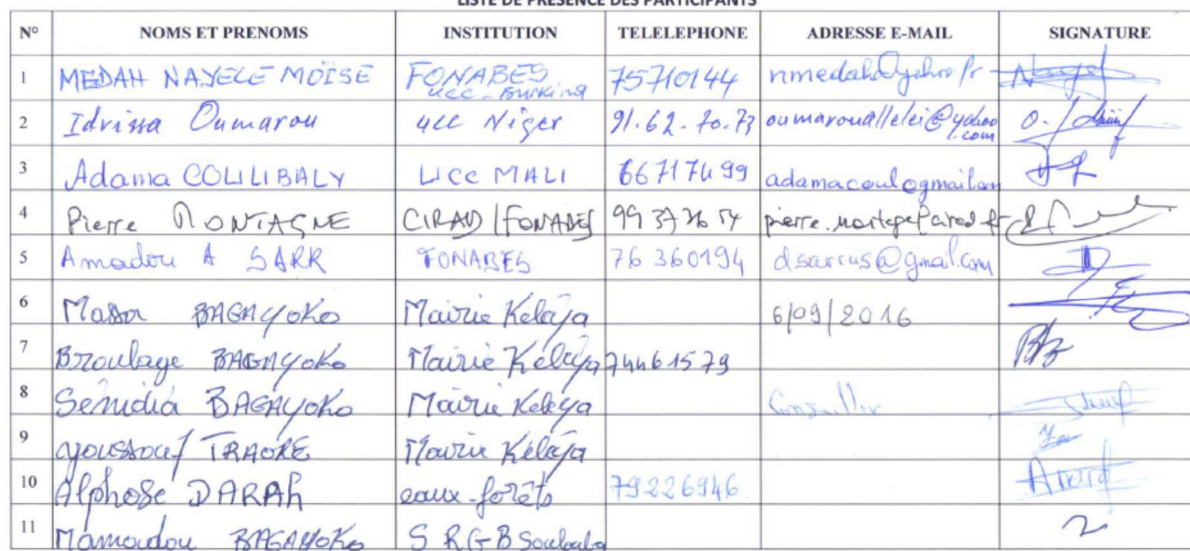 LISTE DE PRESENCE DES PARTICIPANTS
N° NOMS ET PRENOMS INSTITUTION TELELEPHONE ADRESSE E-MAIL SIGNATURE
1 MEDAH NAYELE MOÏSE FONABES ucc-Burkina 75710144
2 Idrissa Oumarou ucc Niger 91.62.70.73 oumarouallelei@yahoo.com
3 Adama COULIBALY UCC MALI 66717499
4 Pierre MONTAGNE CIRAD/FONABES 99 37 26 54
5 Amadou A SARR FONABES 76 360194 dsarrus@gmail.com
6 BAGAYOKO Mairie Keleya 6/09/2016
7 Broulaye BAGAYOKO Mairie Keleya 74461579
8 Senidia BAGAYOKO Mairie Keleya Conseiller
9 youssouf TRAORE Mairie Keleya
10 Alphose DARAH eaux-forêts 79226946
11 Mamoudou BAGAYOKO S R G B